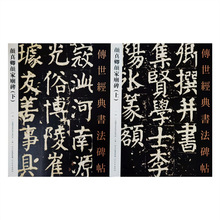 傳世經典書法碑帖
顏真卿顏家廟碑(上)
卿撰并書
集賢學士李
陽冰篆額
傳世經典書法碑帖
顏真卿顏家廟碑(下)
寇泚河南源
光裕博陵崔
璩友善事具